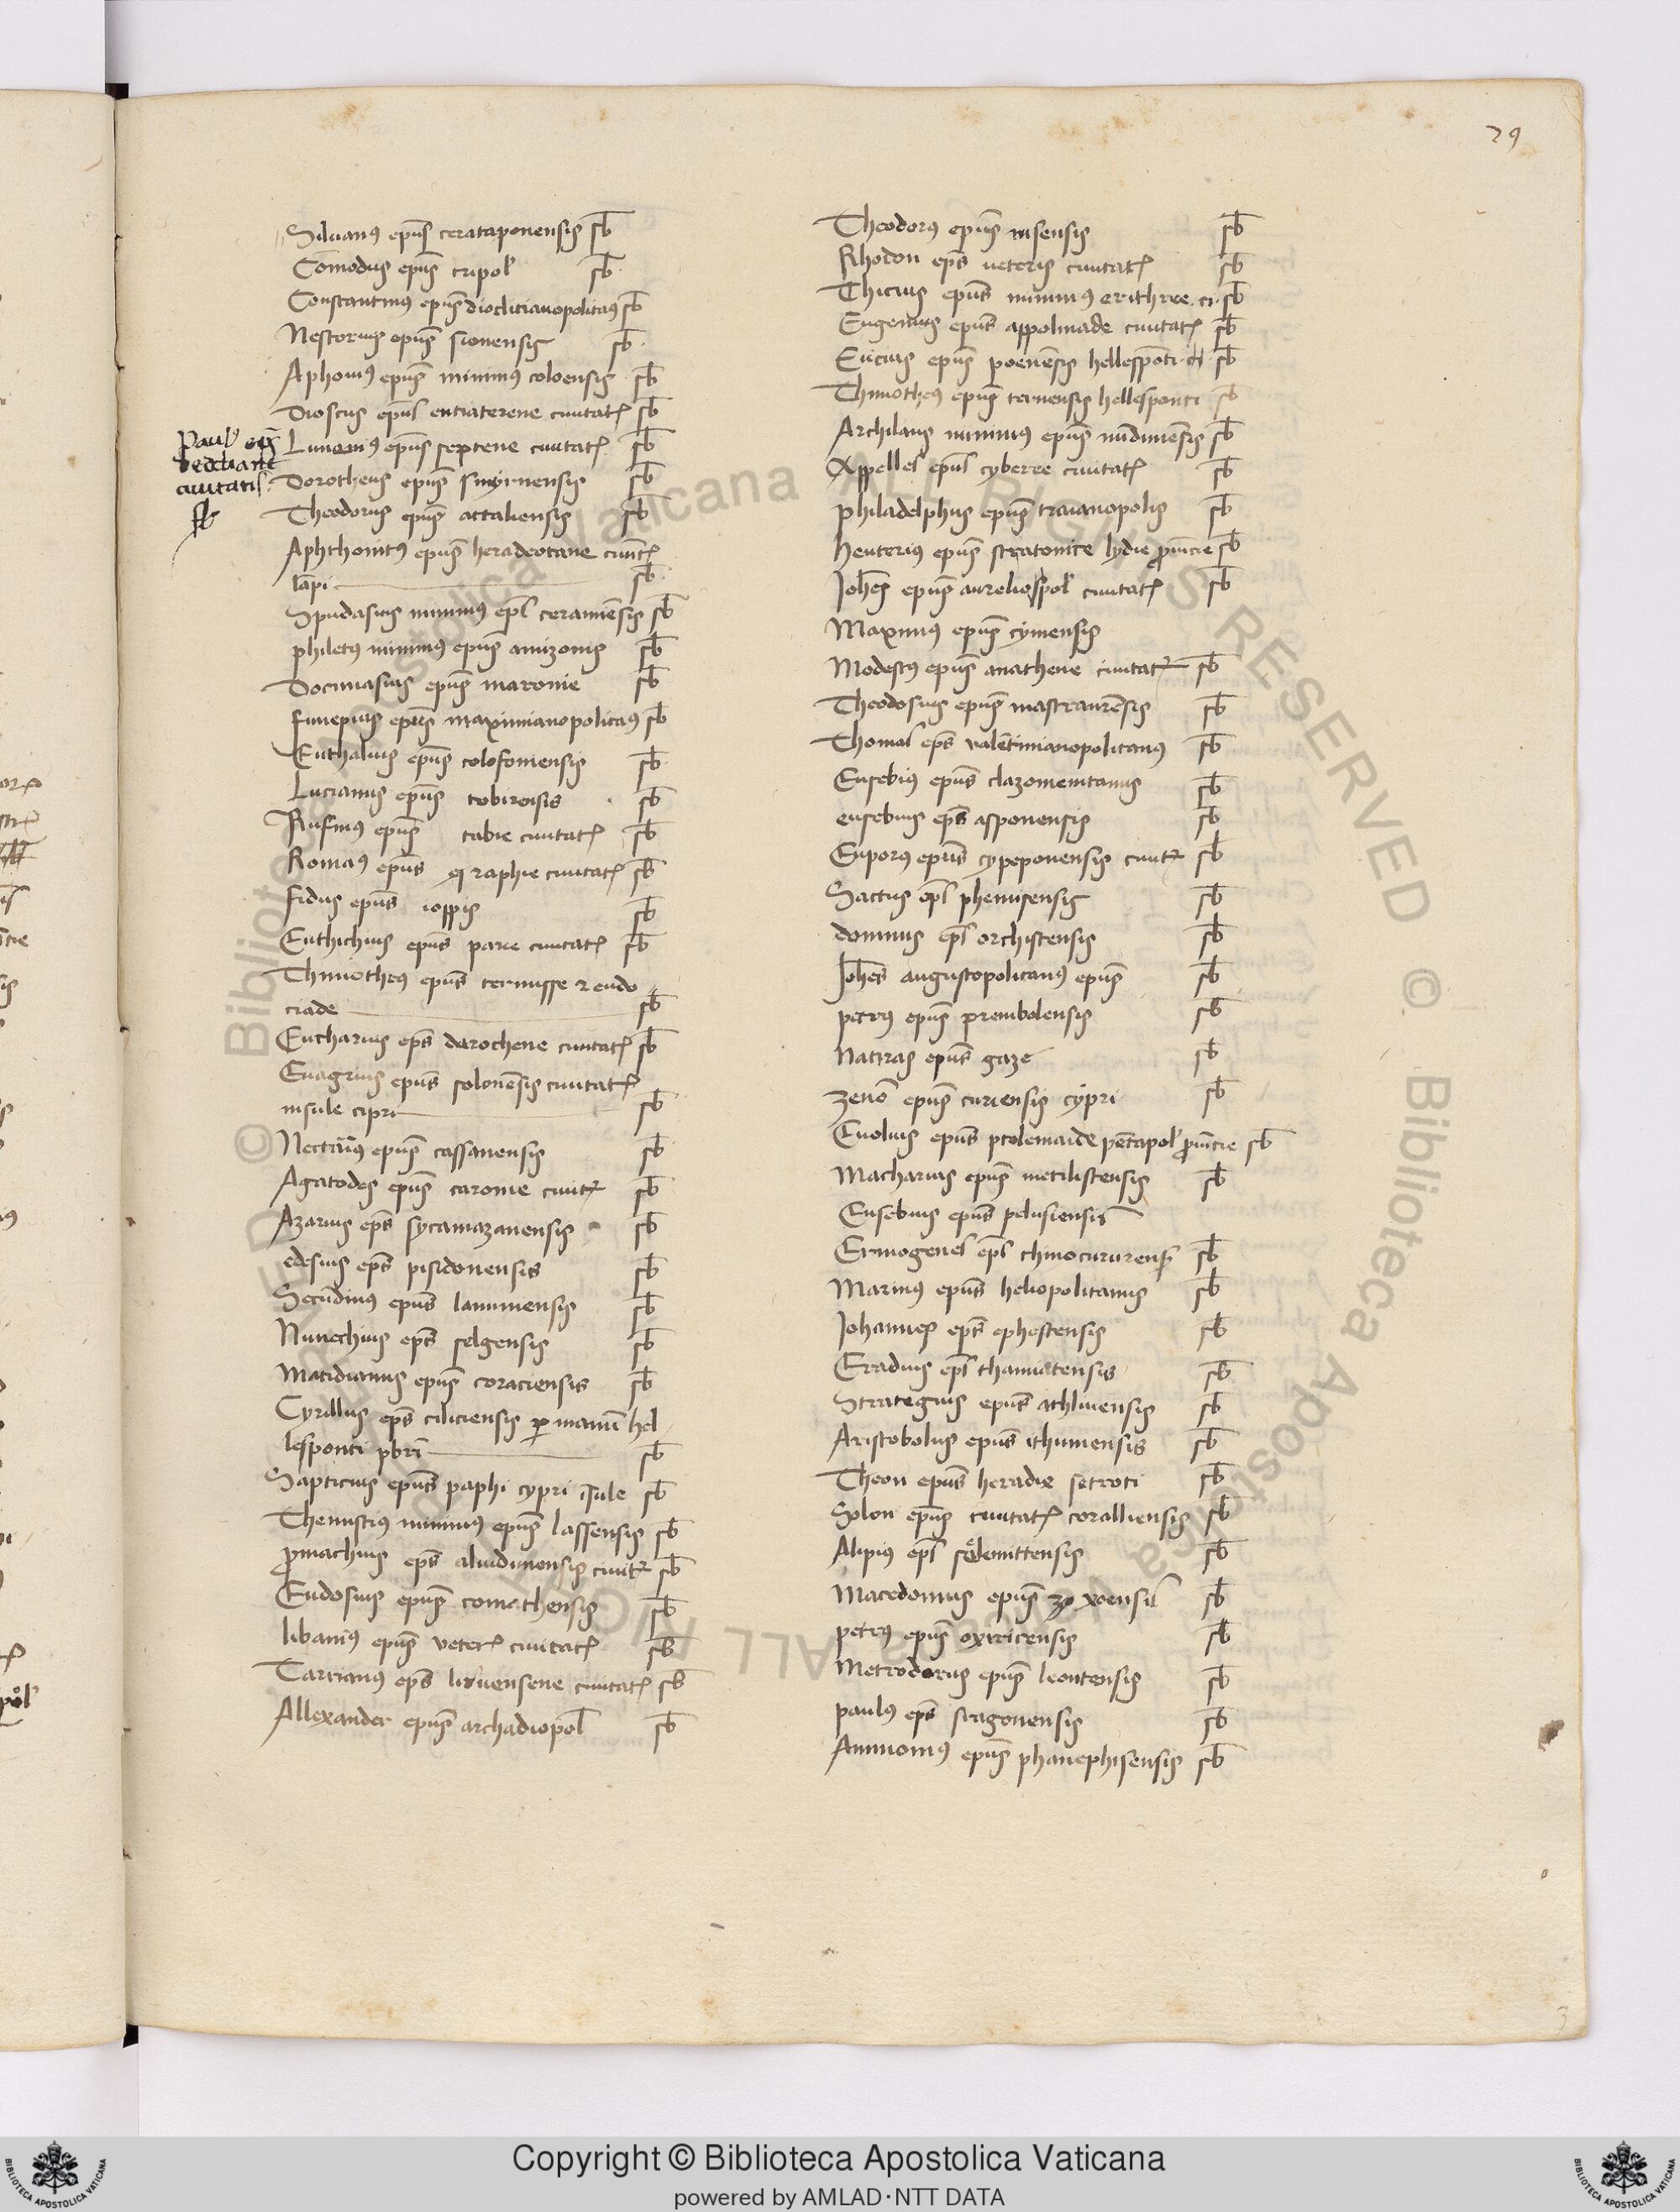 29
Siluanꝰ ep̄us cerataponensis sb̄
Com̄odus ep̄us tripol' sb̄
Constantinꝰ ep̄us dioclicianopolitaꝰ sb̄
Nestorius ep̄us sionensis sb̄
Aphonꝰ ep̄us minimꝰ coloensis sb̄
Dioscus ep̄us entraterene ciuitat sb̄
Paul' ep̄s
dedaane
ciuitatis
sb
ep̄us septene ciuitat sb̄
Dorotheus ep̄us smyrnensis sb̄
Theodorus ep̄us attaliensis sb̄
Aphthonitꝰ ep̄us heradeotane ciuit
lāpi sb̄
Spudasius minimus ep̄s ceramēsis sb̄
philetꝰ minimꝰ ep̄us amizonis sb̄
Docimasius ep̄us maronie sb̄
funepius ep̄us maximianopolitaꝰ sb̄
Euthalius ep̄us colofoniensis sb̄
Lucianus ep̄us tobirensis sb̄
Rufinus ep̄us tabie ciuitat sb̄
Romaꝰ ep̄us raphie ciuitat sb̄
fidus ep̄us ioppis sb̄
Euthichius ep̄us parie ciuitat sb̄
Thimotheꝰ ep̄us termisse ⁊ eudo
ciade sb̄
Eucharius ep̄s darochene ciuitat sb̄
Euagrius ep̄us solonēsis ciuitat
insule cipri sb̄
ep̄us cassanensis sb̄
Agatodes ep̄us caronie ciuit sb̄
Azarius ep̄s sycamazanensis sb̄
edesius ep̄s pisidonensis sb̄
Secūdinus ep̄us lamnensis sb̄
Nunechius ep̄s selgensis sb̄
Matidianus ep̄us coraciensis sb̄
Cyrillus ep̄s ciliciensis ꝑ manū hel
lesponti pbr̄i sb̄
Sapricius ep̄us paphi cypri īsule sb̄
Themistiꝰ minimꝰ ep̄us lassensis sb̄
ꝓmachius ep̄s aluidimensis ciuit sb̄
Eudosius ep̄us comathensis sb̄
libaniꝰ ep̄us veter ciuitat sb̄
Tarianus ep̄s liruensene ciuitat sb̄
Allexander ep̄us archadiopol sb̄
Theodorꝰ ep̄us insensis sb̄
Rhodon ep̄s ueteris ciuitat sb̄
Thicius ep̄us minimꝰ erithree ci sb̄
Eugenius ep̄us appolinade ciuitat sb̄
Eucius ep̄us poenēsis hellespōti sb̄
Thimotheꝰ ep̄us termensis hellesponti sb̄
Archilaus minimus ep̄us mīdimēsis sb̄
Appelles ep̄us cyberee ciuitat sb̄
philadelphus ep̄us traianopolis sb̄
heuterius ep̄us stratonice lydie ꝓuīcie sb̄
Joh̄es ep̄us aureliospol' ciuitat sb̄
Maximꝰ ep̄us cymensis
Modestꝰ ep̄us anathene ciuitat sb̄
Theodosius ep̄us mastraurēsis sb̄
Thomas ep̄s valētinianopolitanꝰ sb̄
Eusebius ep̄us clazomenitanus sb̄
eusebius ep̄s asponensis sb̄
Euporꝰ ep̄us cypeponensis ciuit sb̄
Sactus ep̄s phemisensis sb̄
domnus ep̄s orchistensis sb̄
Joh̄es augustopolitanꝰ ep̄us sb̄
petrꝰ ep̄us prembolensis sb̄
Natiras ep̄us gaze sb̄
zeno ep̄us curiensis cypri sb̄
Euolius ep̄us ptolemaide pētapol' ꝓuīcie sb̄
Macharius ep̄us metilistensis sb̄
Eusebius ep̄us pelusiensis
Ermogenes ep̄s thinocururens sb̄
Marinꝰ ep̄us heliopolitanus sb̄
Johannes ep̄s ephestensis sb̄
Eradius ep̄s thamiatensis sb̄
Strategius ep̄us athliuensis sb̄
Aristobolus ep̄us ithumensis sb̄
Theon ep̄us heradie setroti sb̄
Solon ep̄us ciuitat coralliensis sb̄
Alipius ep̄s selemittensis sb̄
Macedonius ep̄us xoensis sb̄
petrꝰ ep̄us oxiricensis sb̄
Metrodorus ep̄us leontensis sb̄
paulꝰ ep̄s stragonensis sb̄
Ammonius ep̄us phanephisensis sb̄
© Biblioteca Apostolica Vaticana ALL RIGHTS RESERVED
Copyright © Biblioteca Apostolica Vaticana
powered by AMLAD·NTT DATA
BIBLIOTECA APOSTOLICA VATICANA
BIBLIOTECA APOSTOLICA VATICANA